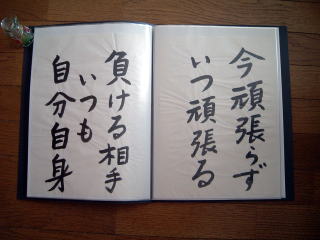 今頑張らず
いつ頑張る
負ける相手
いつも
自分自身